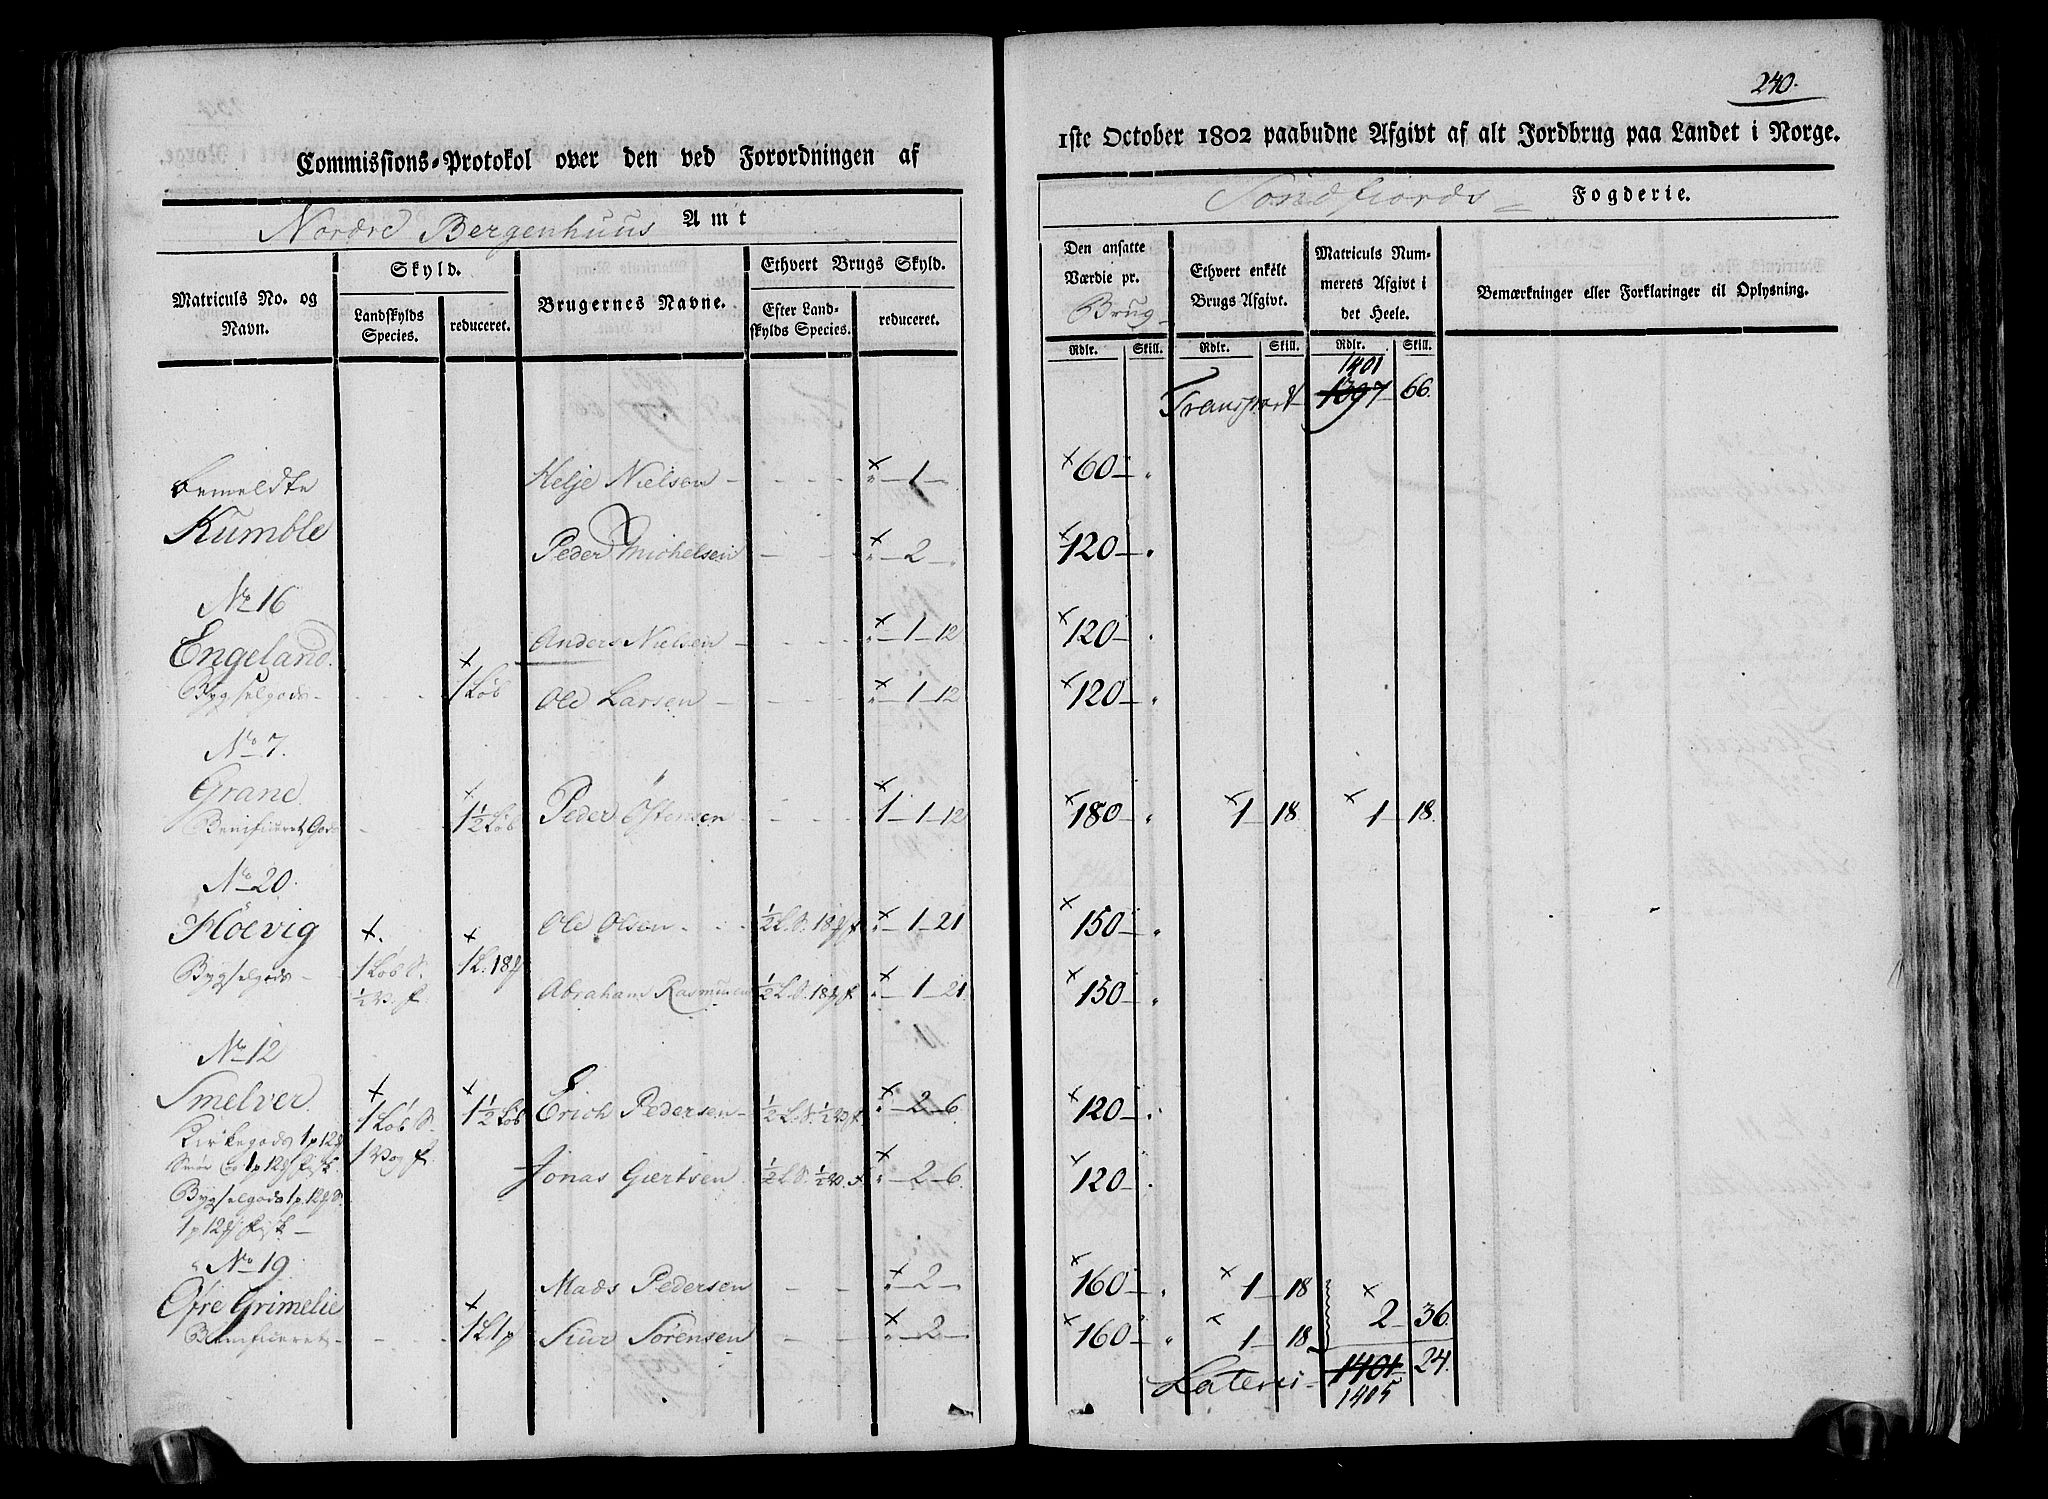 240.
Commissions-Protokol over den ved Forordningen af
1ste October 1802 paabudne Afgivt af alt Jordbrug paa Landet i Norge.
Nordre Bergenhuus Amt
Søndfiords Fogderie.
Matriculs No. og Navn.
Skyld.
Landskylds Species.
reduceret.
Brugernes Navne.
Ethvert Brugs Skyld.
Efter Landskylds Species.
reduceret.
Den ansatte Værdie pr. Brug
Ethvert enkelt Brugs Afgivt.
Matriculs Nummerets Afgivt i det Heele.
Bemærkninger eller Forklaringer til Oplysning.
Rdlr. Skill. Rdlr. Skill. Rdlr. Skill.
1401
Transport 1397 66.
bemeldte Helje Nielsen - - - × " - 1 - × 60 - "
Kumble Peder Michelsen - - - × " - 2 - " × 120 - "
No 16
Engeland Anders Nielsen - - - × " - 1 - 12 × 120 - "
Bygselgods - - - × 1 Løb Ole Larsen - - - × " - 1 - 12 × 120 - "
No 7.
Grane
Benificeret Gods - - × 1½ Løb Peder Østensen - - - × 1 - 1 - 12 × 180 " × 1 - 18 × 1 - 18.
No 20.
Høevig Ole Olsen - - ½ L. S. 18 f × " - 1 - 21 × 150 - "
Bygselgods - × 1 Løb S. ½ V. f. × 1 L. 18 Abraham Rasmusen ½ L. S. 18 f. × " - 1 - 21 × 150 - "
No 12
Smelver × 1 Løb S. × 1½ Løb Erich Pedersen - ½ L. S. ½ V. f. × " - 2 - 6 × 120 - "
Kirkegods 1 p 12
Smør og 1 p 12 fisk 1 Vog f. Jonas Giertsen ½ L. S. ½ V. f. × " - 2 - 6. × 120 - "
Bygselgods 1 p. 12 S.
1 p 12 fisk -
No 19
Øfre Grimelie Mads Pedersen - - × " - 2 - × 160 - " × 1 - 18
× 2 - 36.
Benificeret - - - × 1 L 1 p Siur Sørensen - - × " - 2 - × 160 - " × 1 - 18
Lateris - 1401 24.
1405